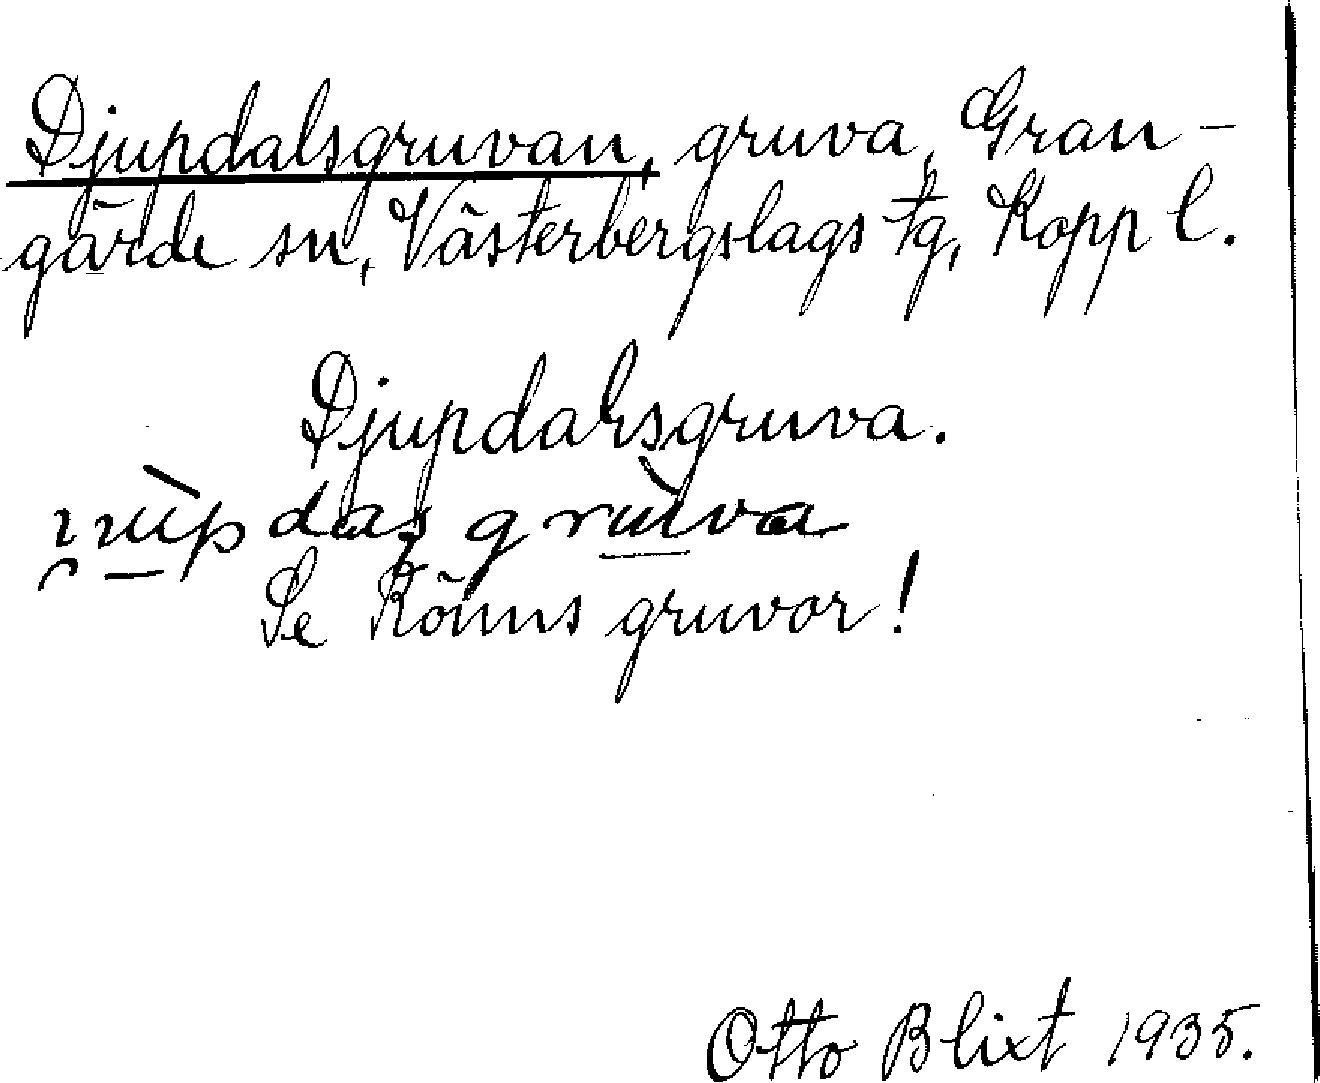 Djupdalsgruvan, gruva, Gran-
gärde sn, Västerbergslags tg, Kopp l.
Djupdalsgruva.
Se Rönns gruvor!
Otto Blixt 1935.